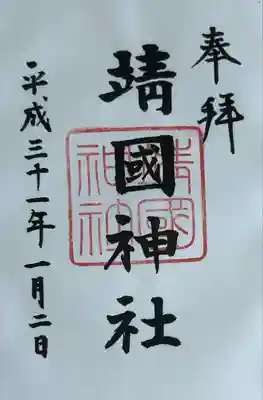 奉拝
靖國神社
平成三十一年一月二日
靖國
神社